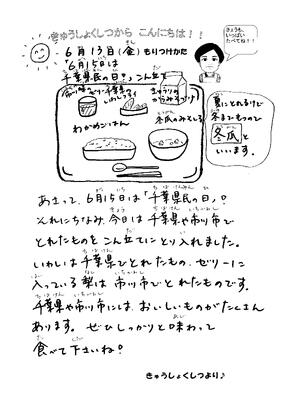 きゅうしょくしつから こんにちは！！
きょうも、
いっぱい
たべてね！！
6月13日(金) もりつけかた
6月15日は
千葉県民の日♪ こんだて
梨ゼリー
千葉県
いわしフライ
きゅうりの
からみづけ
わかめごはん
冬瓜のみそしる
夏にとれるけど
冬までもつので
冬瓜 と
いいます。
あさって、6月15日は「千葉県民の日」♪
それにちなみ、今日は千葉県や市川市で
とれたものをこん立てにとり入れました。
いわしは千葉県でとれたもの、ゼリーに
入っている梨は市川市でとれたものです。
千葉県や市川市には、おいしいものがたくさん
あります。ぜひしっかりと味わって
食べて下さいね♪
きゅうしょくしつより♪